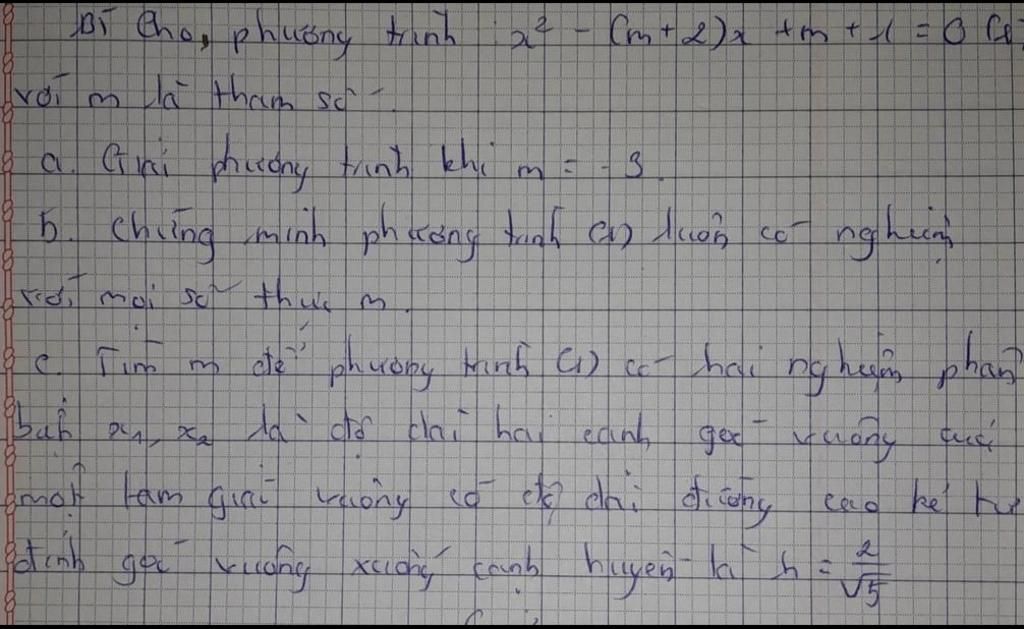 B1 Cho, phương trình : x² - (m+2)x + m + 1 = 0 (1)
với m là tham số.
a. Giải phương trình khi m = -3.
b. Chứng minh phương trình (1) luôn có nghiệm
với mọi số thực m.
c. Tìm m để phương trình (1) có hai nghiệm phân
biệt x₁, x₂ là độ dài hai cạnh góc vuông của
một tam giác vuông có độ dài đường cao kẻ từ
đỉnh góc vuông xuống cạnh huyền là h = 2/√5